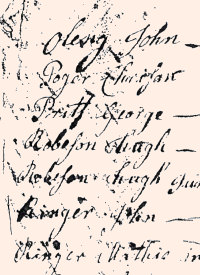 Olesig John
Poger Christian
Pritt George
Robeson Hugh
Robeson Hugh
Ringer John
Ringer Mathis